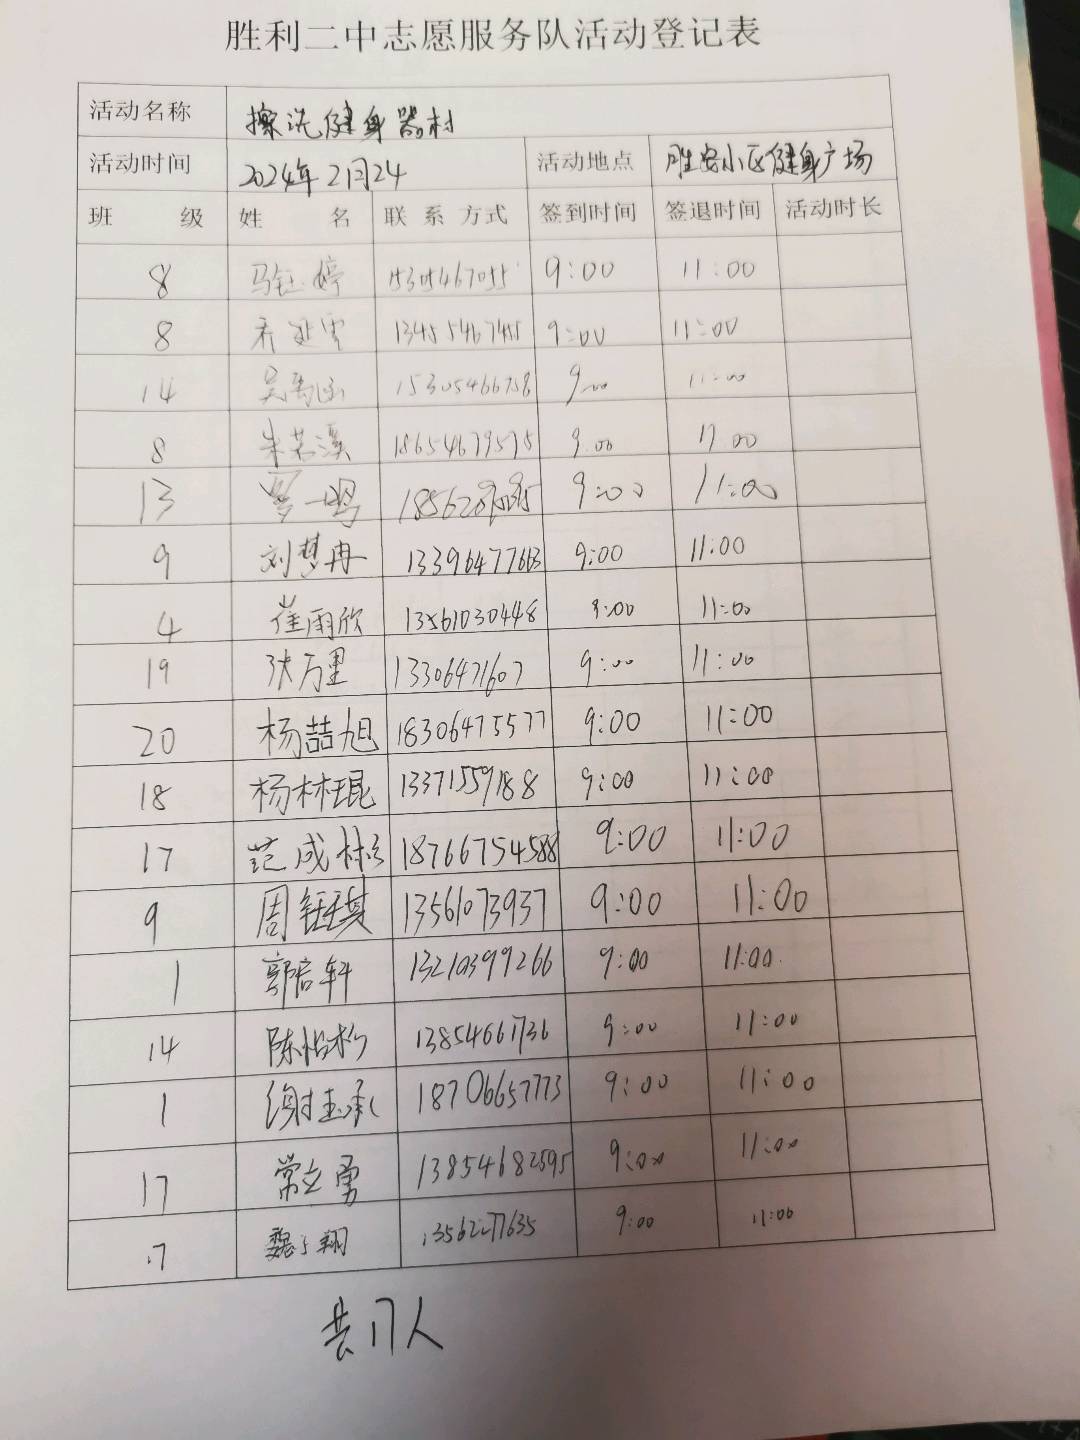 胜利二中志愿服务队活动登记表
活动名称 擦洗健身器材
活动时间 2024年2月24 活动地点 胜安小区健身广场
班 级 姓 名 联系方式 签到时间 签退时间 活动时长
8 马钰婷 15305467055 9:00 11:00
8 13455467455 9:00 11:00
14 吴禹函 15305466758 9:00 11:00
8 朱若溪 18654679575 9:00 11:00
13 一鸣 9:00 11:00
9 刘梦冉 13396477663 9:00 11:00
4 崔雨欣 13561030448 9:00 11:00
19 张万里 13306471607 9:00 11:00
20 杨喆旭 18306475577 9:00 11:00
18 杨林琨 13371559188 9:00 11:00
17 范成彬 18766754588 9:00 11:00
9 周钰琪 13561073937 9:00 11:00
1 郭启轩 13210399266 9:00 11:00
14 陈怡杉 13854661736 9:00 11:00
1 谢孟承 18706657773 9:00 11:00
17 常立勇 13854682595 9:00 11:00
17 魏子翔 13562277635 9:00 11:00
共17人